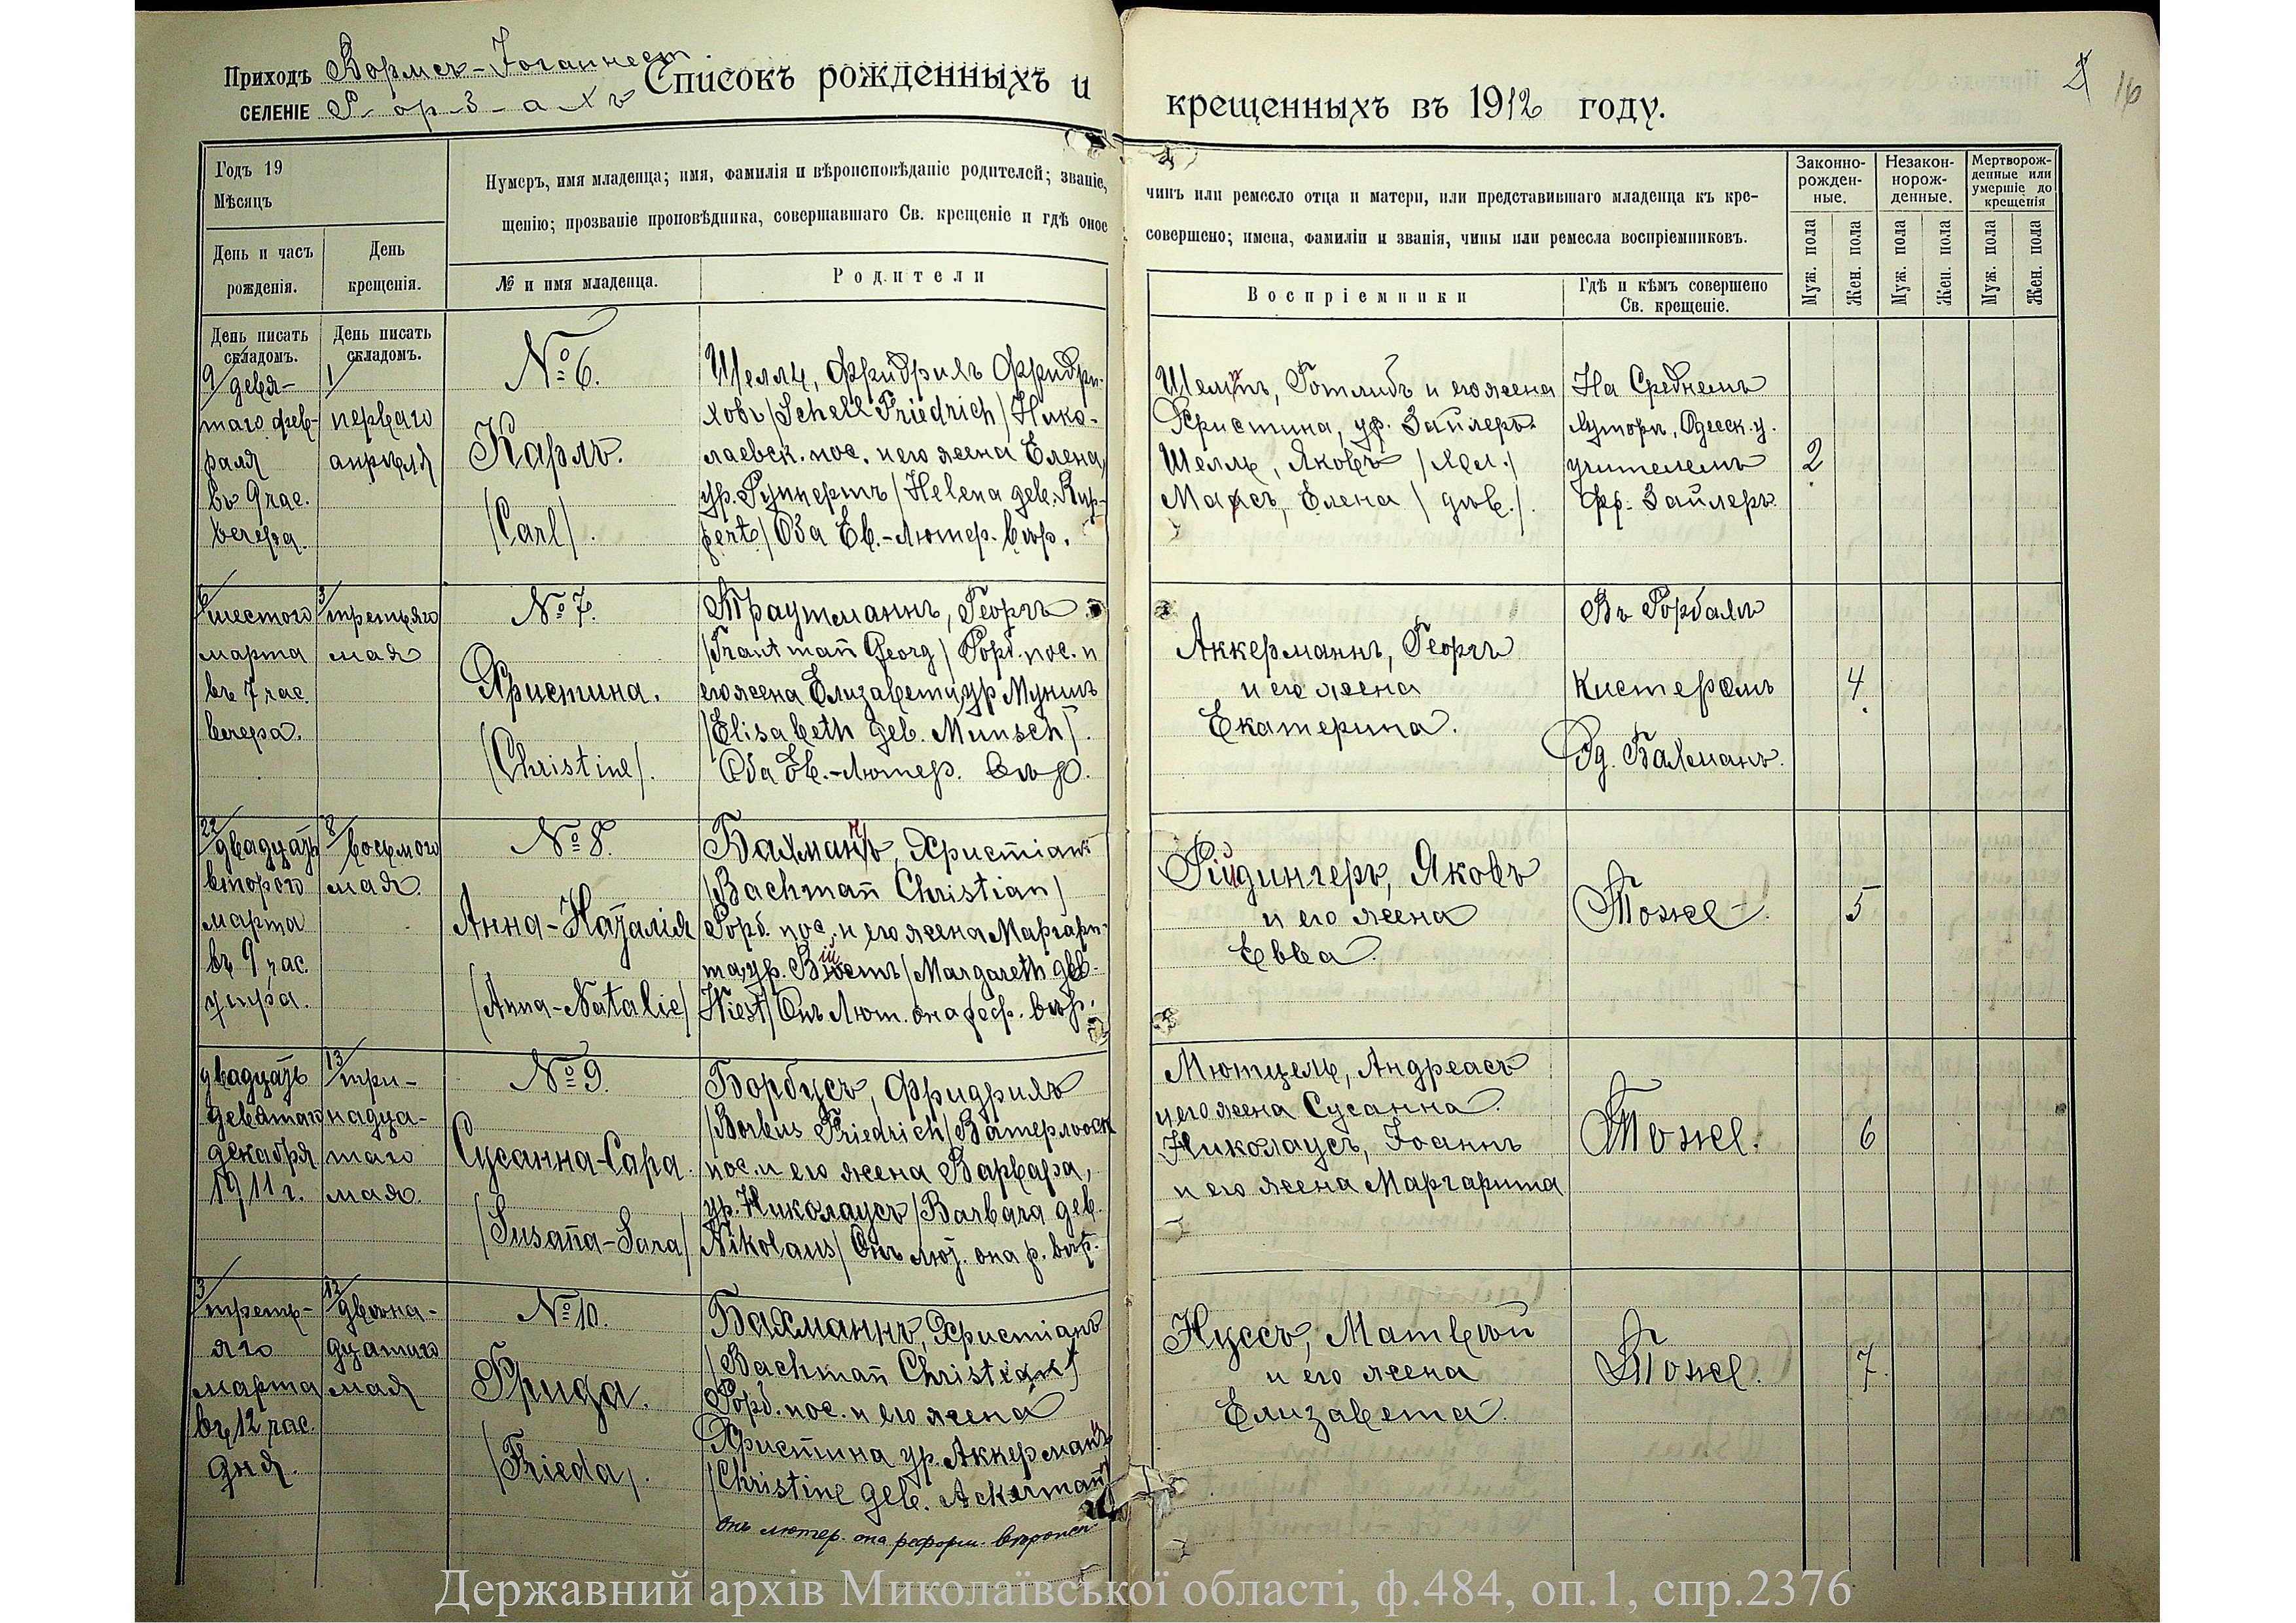 Приходъ Вормсъ-Іоганнест.
СЕЛЕНІЕ Р-ор-б-а-хъ
Списокъ рожденныхъ и
крещенныхъ въ 1912 году.
2
16
Годъ 19
Мѣсяцъ
День и часъ
рожденія.
День
крещенія.
Нумеръ, имя младенца; имя, фамилія и вѣроисповѣданіе родителей; званіе,
щенію; прозваніе проповѣдника, совершавшаго Св. крещеніе и гдѣ оное
№ и имя младенца.
Родители
чинъ или ремесло отца и матери, или представившаго младенца къ кре-
совершено; имена, фамиліи и званія, чины или ремесла воспріемниковъ.
Воспріемники
Гдѣ и кѣмъ совершено
Св. крещеніе.
Законно-
рожден-
ные.
Незакон-
норож-
денные.
Мертворож-
денные или
умершіе до
крещенія
Муж. пола
Жен. пола
Муж. пола
Жен. пола
Муж. пола
Жен. пола
День писать
складомъ.
День писать
складомъ.
9/ девя-
таго фев-
раля
въ 9 час.
вечера.
1/
перваго
апрѣля
№ 6.
Карлъ.
(Carl).
Шелль, Фридрихъ Фридри-
ховъ (Schell Friedrich) Нико-
лаевск. пос. и его жена Елена,
ур. Руппертъ (Helena geb. Rup-
pert) Оба Ев.-Лютер. вѣр.
Шелль, Готлибъ и его жена
Христина, ур. Зайлеръ
Шелль, Яковъ (хол.)
Максъ, Елена (дѣв.).
На Среднемъ
Хуторѣ, Одесск. у.
учителемъ
Фр. Зайлеръ.
2
6/ шестого
марта
въ 7 час.
вечера.
3/ третьяго
мая
№ 7.
Христина.
(Christine).
Траутманнъ, Георгъ
(Trautmañ Georg) Рорб. пос. и
его жена Елизавета, ур. Муншъ
(Elisabeth geb. Munsch).
Оба Ев.-Лютер. вѣр.
Аккерманнъ, Георгъ
и его жена
Екатерина.
Въ Рорбахѣ
Кистеромъ
Эд. Бахманъ.
4
22/ двадцать
второго
марта
въ 9 час.
утра.
8/ восьмого
мая.
№ 8.
Анна-Наталія
(Anna-Natalie)
Бахманнъ, Христіанъ
(Bachmañ Christian)
Рорб. пос. и его жена Маргари-
та, ур. Вистъ (Margareth geb.
Wiest) Онъ Лют. она реф. вѣр.
Рѣйдингеръ, Яковъ
и его жена
Евва.
Тоже.
5
двадцать
девятаго
декабря
1911 г.
13/ три-
надца-
таго
мая.
№ 9.
Сусанна-Сара.
(Susaña-Sara)
Борбусъ, Фридрихъ
(Borbus Friedrich) Ватерлооск
пос. и его жена Варвара,
ур. Николаусъ (Barbara geb.
Nikolaus) Онъ лют. она р. вѣр.
Мютцель, Андреасъ
и его жена Сусанна.
Николаусъ, Іоаннъ
и его жена Маргарита
Тоже.
6
3/ треть-
яго
марта
въ 12 час.
дня.
12/ двѣна-
дцатаго
мая
№ 10.
Фрида.
(Frieda).
Бахманнъ, Христіанъ
(Bachmañ Christian)
Рорб. пос. и его жена
Христина ур. Аккерманнъ
(Christine geb. Ackermañ)
онъ лютер. она реформ. вѣроисп.
Нуссъ, Матвѣй
и его жена
Елизавета.
Тоже.
7
Державний архів Миколаївської області, ф.484, оп.1, спр.2376